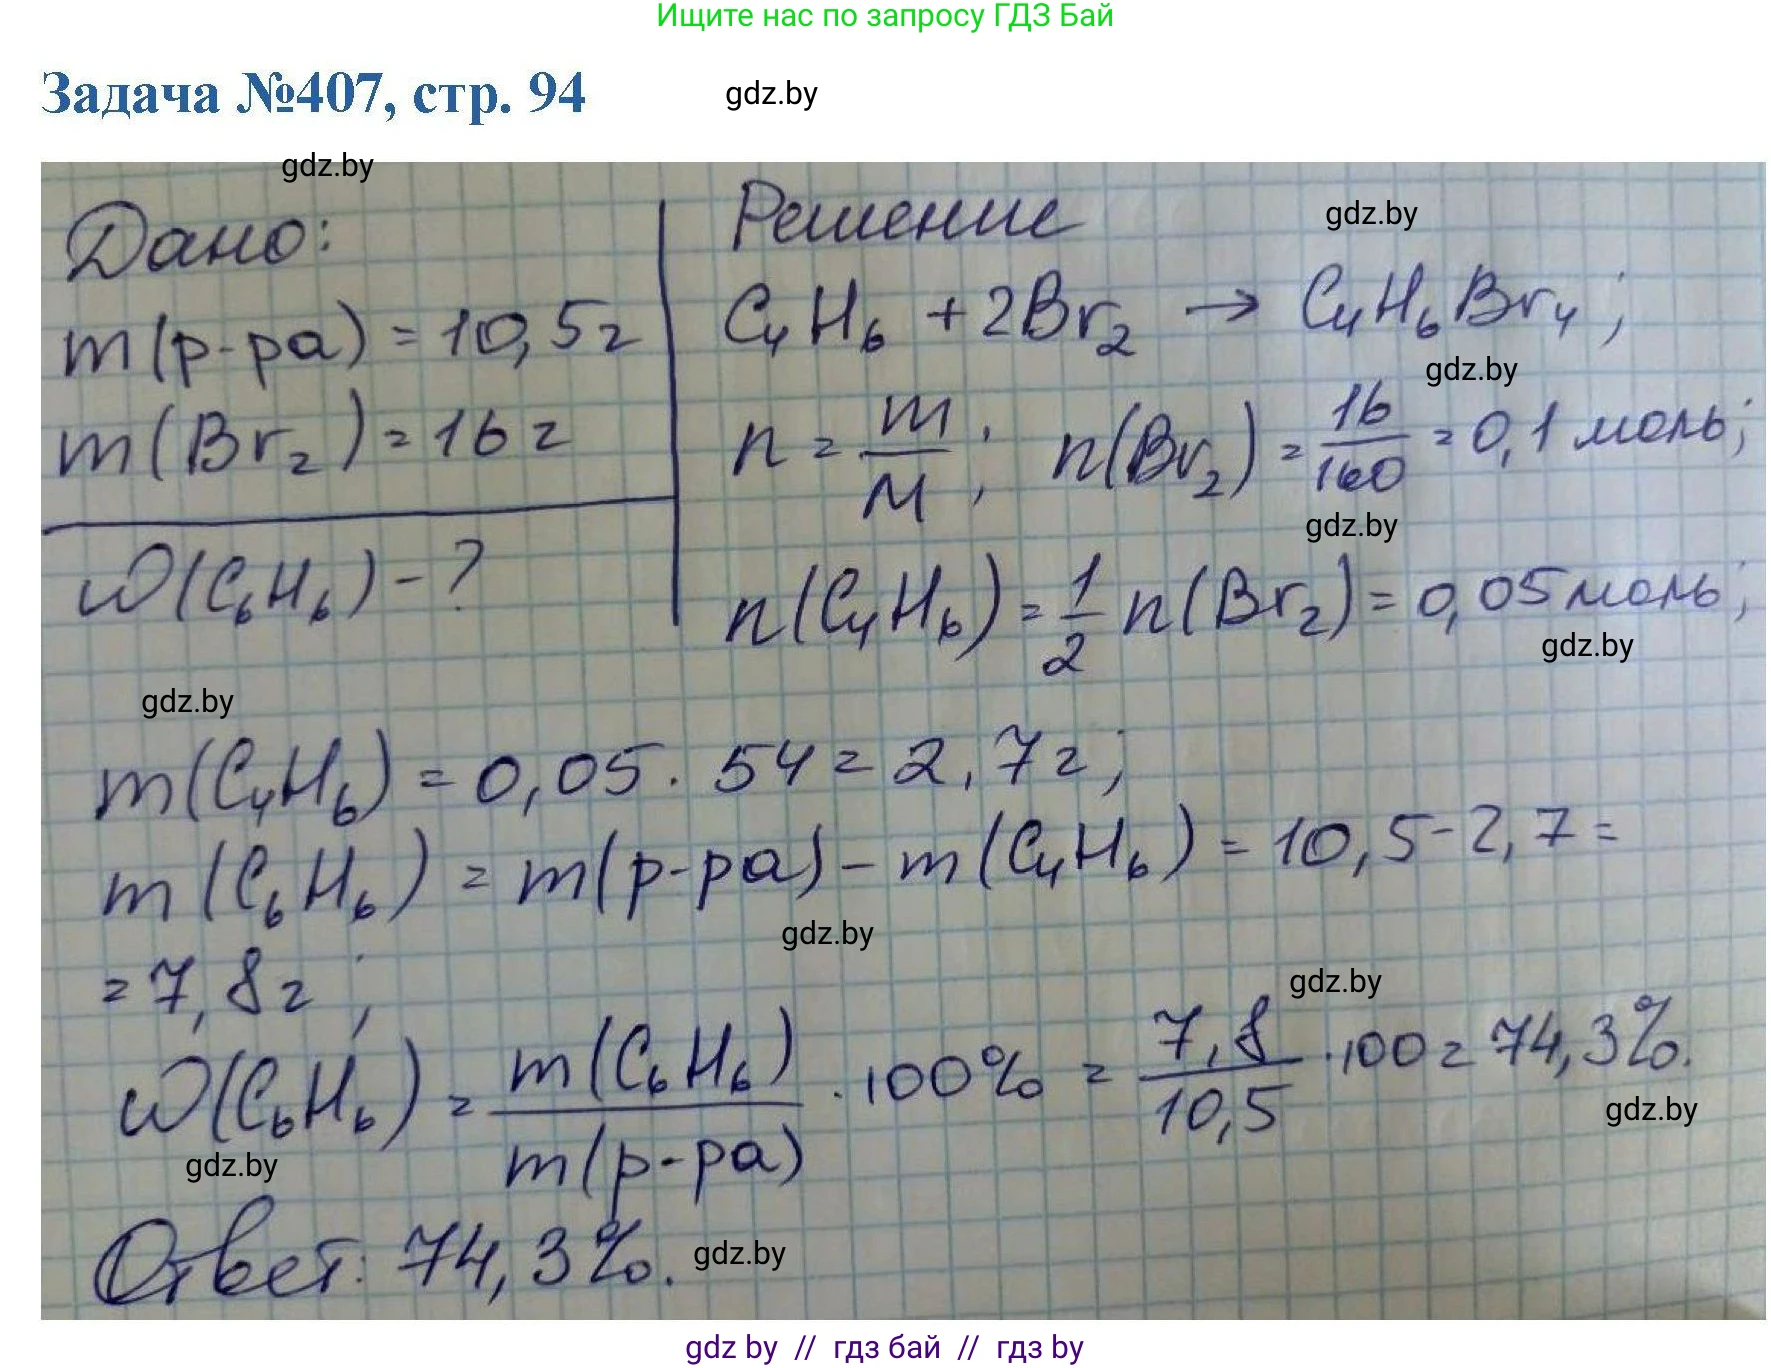 Ищите нас по запросу ГДЗ Бай
Задача №407, стр. 94
gdz.by
gdz.by
Дано:
m(р-ра) = 10,5г
m(Br₂) = 16г
ω(C₆H₆) - ?
Решение
gdz.by
C₄H₆ + 2Br₂ → C₄H₆Br₄;
gdz.by
n = m/M; n(Br₂) = 16/160 = 0,1 моль;
gdz.by
n(C₄H₆) = 1/2 n(Br₂) = 0,05 моль;
gdz.by
gdz.by
m(C₄H₆) = 0,05 · 54 = 2,7г;
m(C₆H₆) = m(р-ра) - m(C₄H₆) = 10,5 - 2,7 =
gdz.by
= 7,8г;
gdz.by
ω(C₆H₆) = m(C₆H₆)/m(р-ра) · 100% = 7,8/10,5 · 100 = 74,3%.
gdz.by
gdz.by
Ответ: 74,3%.
gdz.by
gdz by // гдз бай // гдз by